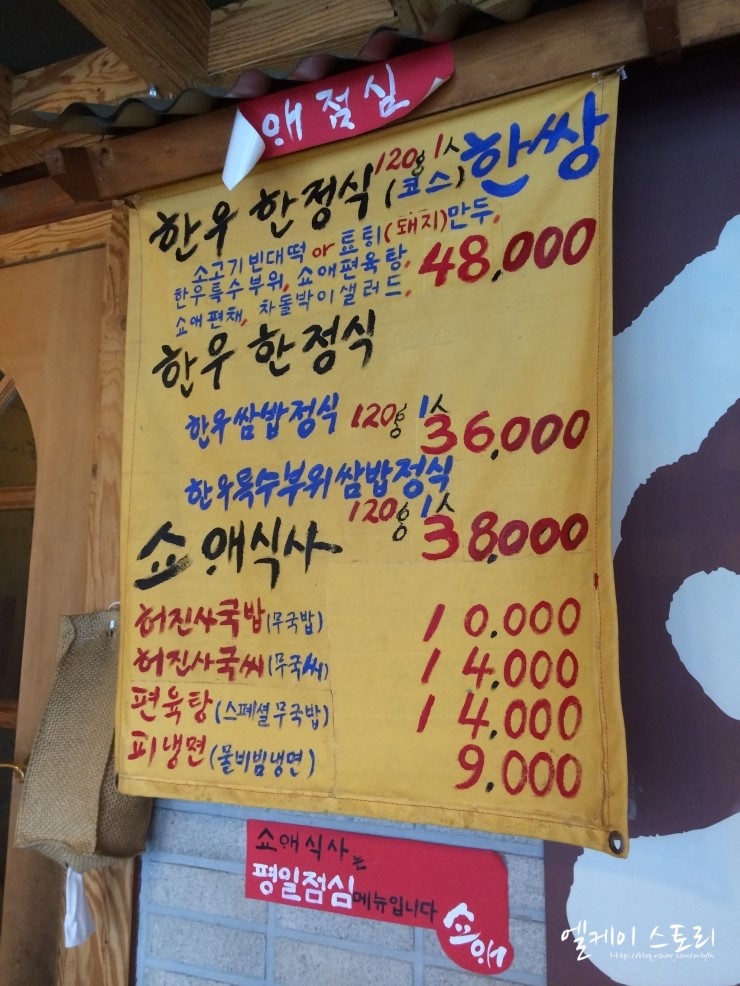 애 점심
한우 한정식 (코스) 120g 1人 한쌍
소고기빈대떡 or 료튀(돼지)만두,
한우특수부위, 쇼애편육탕, 48,000
쇼애편채, 차돌박이샐러드,
한우 한정식
한우쌈밥정식 120g 1人 36,000
한우특수부위쌈밥정식
120g 1人 38,000
쇼애식사
허진사국밥(무국밥) 10,000
허진사국씨(무국씨) 14,000
편육탕(스페셜무국밥) 14,000
피냉면(물비빔냉면) 9,000
쇼애식사는
평일점심메뉴입니다
쇼애
엘케이 스토리